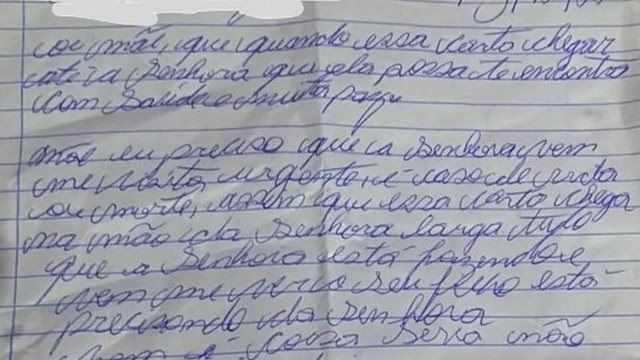 oi mãe, que quando essa carta chegar
ate a Senhora que ela possa te encontra
com Saúde e muita paz
mãe eu preciso que a Senhora vem
me visita urgente, é caso de vida
ou morte, assim que essa carta chegar
na mão da Senhora larga tudo
que a Senhora está fazendo e
vem me ver o seu filho está
precisando da Senhora
é coisa Seria mão